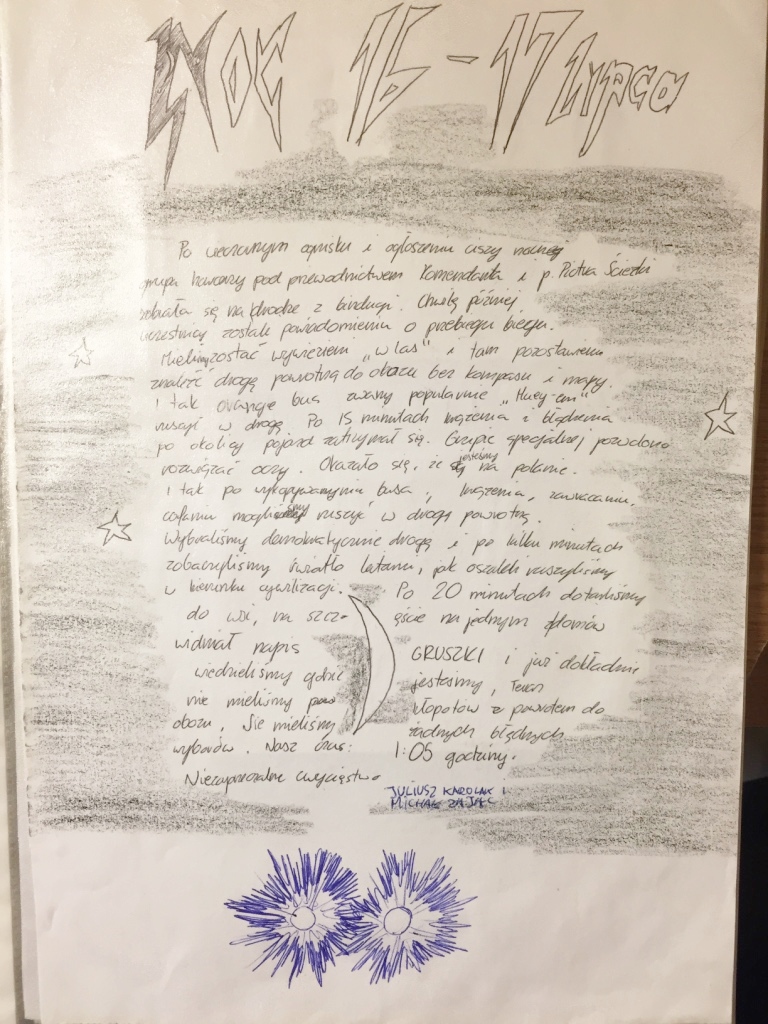 NOC 16-17 Lipca
Po wieczornym ognisku i ogłoszeniu ciszy nocnej
grupa pod przewodnictwem Komendanta i p. Piotra Ścieżki
zebrała się na drodze z bindugi. Chwilę później
uczestnicy zostali powiadomieniu o przebiegu biegu.
Mieliśmy zostać wywiezieni „w las" i tam pozostawieni
znaleźć drogę powrotną do obozu bez kompasu i mapy.
I tak oto bus zwany popularnie
ruszył w drogę. Po 15 minutach krążenia i błądzenia
po okolicy pojazd zatrzymał się. Grupie specjalnej pozwolono
rozwiązać oczy. Okazało się, że jesteśmy na polanie.
I tak po busa, krążenia, zawracaniu,
cofaniu mogliśmy ruszyć w drogę powrotną.
Wybraliśmy demokratycznie drogę i po kilku minutach
zobaczyliśmy światło latarni, jak oszaleli ruszyliśmy
w kierunku cywilizacji. Po 20 minutach dotarliśmy
do wsi, na szczęście na jednym z domów
widniał napis GRUSZKI i już dokładnie
wiedzieliśmy gdzie jesteśmy, Teraz
nie mieliśmy kłopotów z powrotem do
obozu, nie mieliśmy żadnych błędnych
wyborów. Nasz czas: 1:05 godziny.
Niezaprzeczalne zwycięstwo
JULIUSZ KAROLAK I
MICHAŁ ZAJĄC